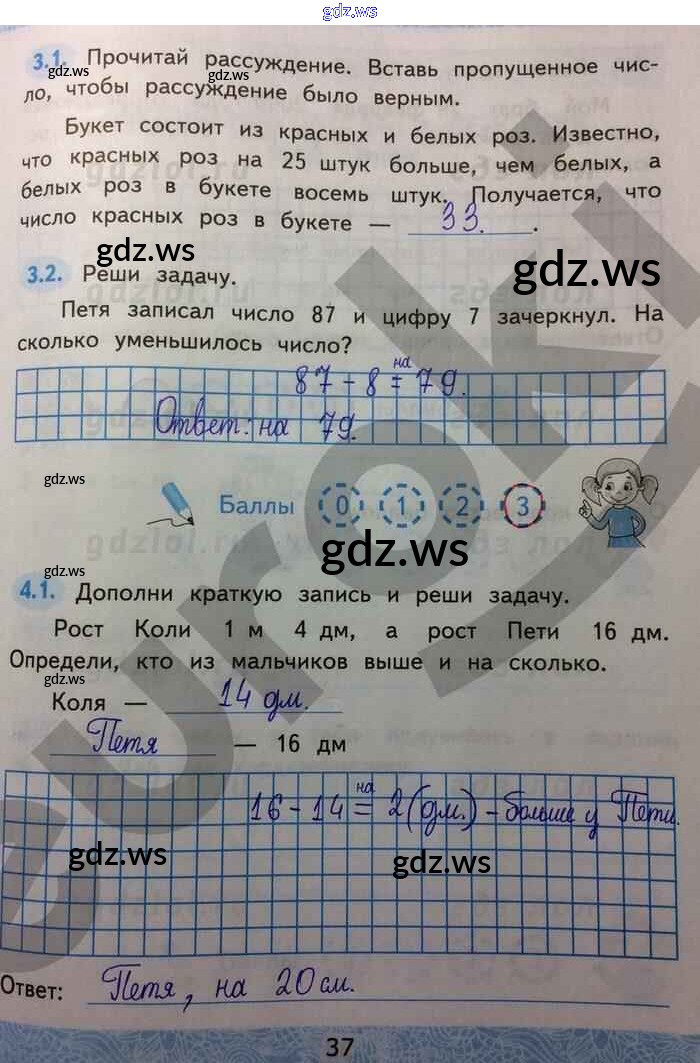 gdz.ws
3.1. Прочитай рассуждение. Вставь пропущенное чис-
gdz.ws gdz.ws
ло, чтобы рассуждение было верным.
Букет состоит из красных и белых роз. Известно,
что красных роз на 25 штук больше, чем белых, а
белых роз в букете восемь штук. Получается, что
число красных роз в букете — 33. .
gdz.ws gdz.ws
3.2. Реши задачу.
Петя записал число 87 и цифру 7 зачеркнул. На
сколько уменьшилось число?
на
87 - 8 = 79.
Ответ: на 79.
gdz.ws
Баллы 0 1 2 3
gdz.ws
gdz.ws
4.1. Дополни краткую запись и реши задачу.
Рост Коли 1 м 4 дм, а рост Пети 16 дм.
Определи, кто из мальчиков выше и на сколько.
gdz.ws
Коля — 14 дм.
Петя — 16 дм
на
16 - 14 = 2 (дм.) - больше у Пети.
gdz.ws gdz.ws
Ответ: Петя, на 20 см.
37